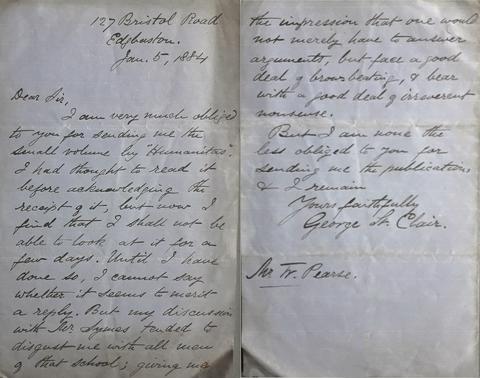 127 Bristol Road
Edgbaston.
Jan. 5, 1884
Dear Sir,
I am very much obliged
to you for sending me the
small volume by "Humanitas".
I had thought to read it
before acknowledging the
receipt of it, but now I
find that I shall not be
able to look at it for a
few days. Until I have
done so, I cannot say
whether it seems to merit
a reply. But my discussion
with Mr Symes tended to
disgust me with all men
of that school; giving me
the impression that one would
not merely have to answer
arguments, but face a good
deal of browbeating, & bear
with a good deal of irreverent
nonsense.
But I am none the
less obliged to you for
sending me the publication
& I remain
Yours faithfully
George St. Clair.
Mr. W. Pearse.